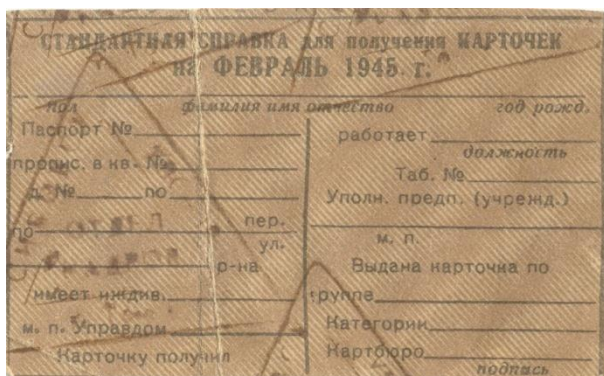 СТАНДАРТНАЯ СПРАВКА для получения КАРТОЧЕК
на ФЕВРАЛЬ 1945 г.
пол фамилия имя отчество год рожд.
Паспорт №
пропис. в кв. №
д. № по
по пер.
ул.
р-на
имеет иждив.
м. п. Управдом
Карточку получил
работает
должность
Таб. №
Уполн. предп. (учрежд.)
м. п.
Выдана карточка по
группе
Категории
Картбюро
подпись